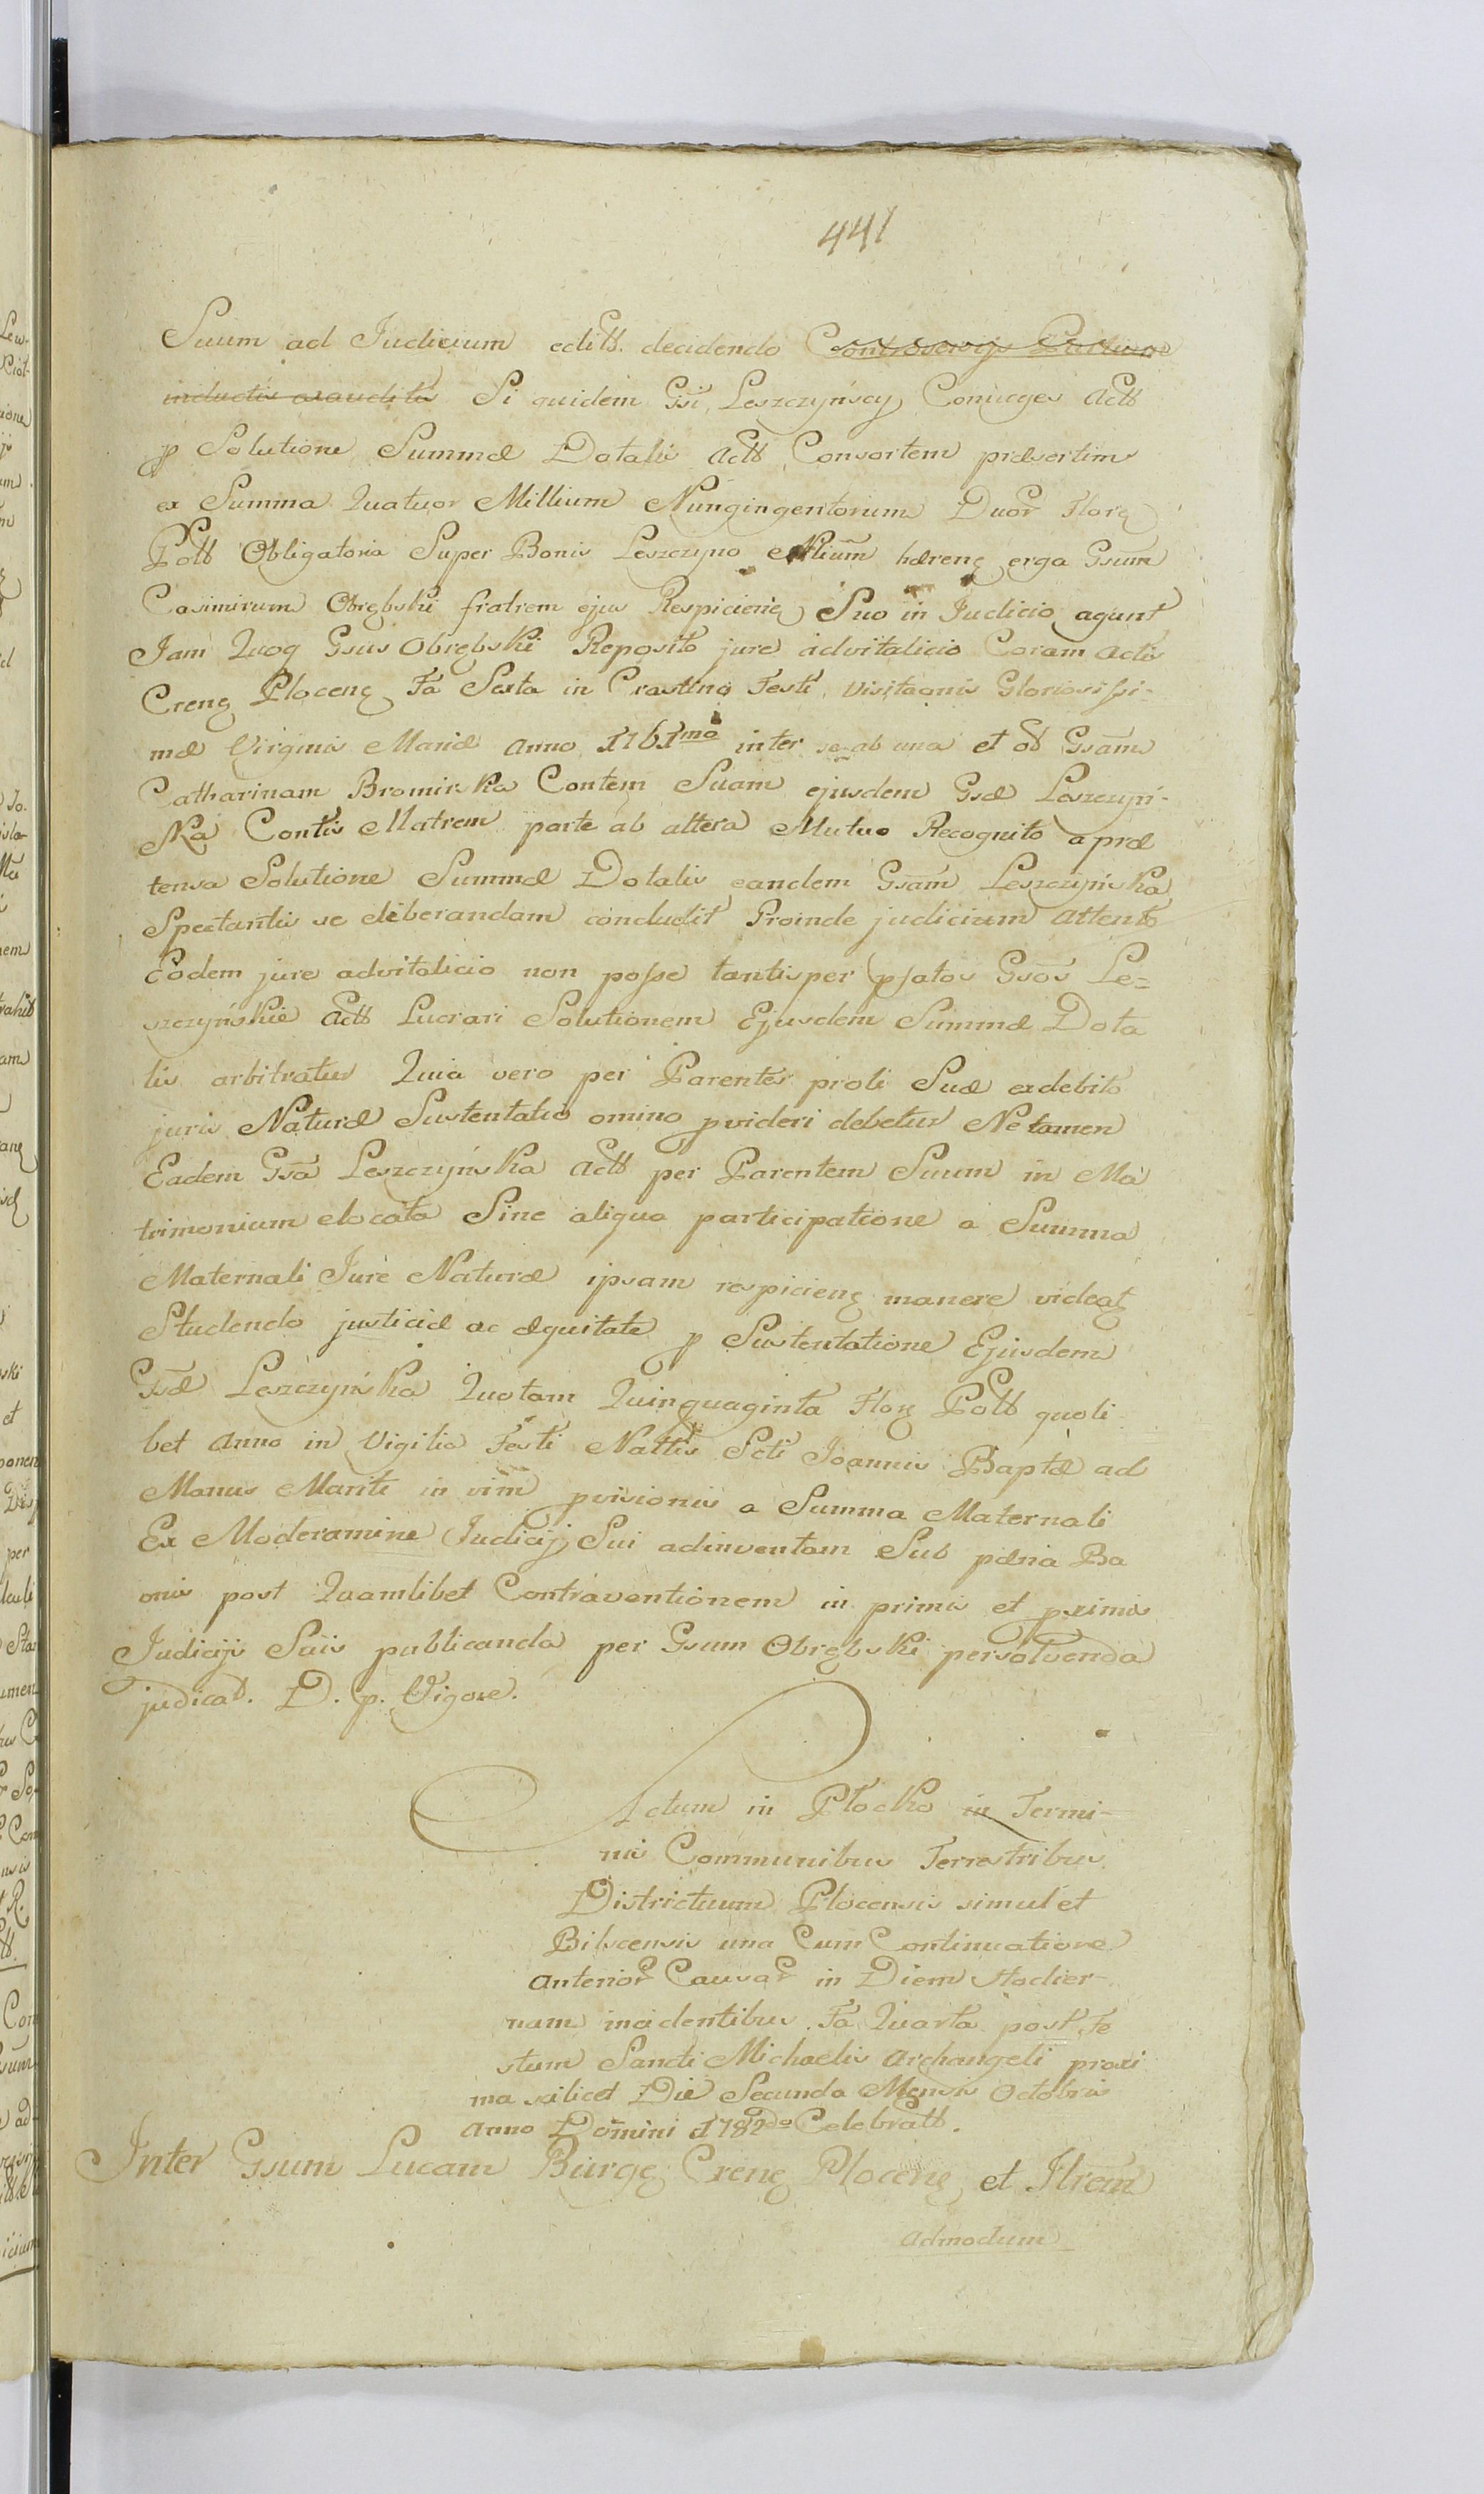 441
Suum ad Judicium editt. decidendo Controversijs Partium
inductis exauditis Si quidem Gsi Leszczyńscy Conjuges Actt
p Solutione Summæ Dotalis Actt Consortem præsertim
ex Summa Quatuor Millium Nungingentorum Duor Floreꝫ
Poltt Obligatoria Super Bonis Leszczyno hæreneꝫ erga Gsum
Casimirum Obrębski fratrem ejus Respicieneꝫ Suo in Judicio agunt
Jam Quoq Gsus Obrębski Reposito jure advitalicio Coram Actis
Creneꝫ Ploceneꝫ Fa Sexta in Crastino Festi Visitaonis Gloriosissi-
mæ Virginis Mariæ Anno 1761mo inter se ab una et ob Gsam
Catharinam Bromirska Contem Suam ejusdem Gsæ Leszczyń-
ska Contis Matrem parte ab altera Mutuo Recognito a præ
tensa Solutione Summæ Dotalis eandem Gsam Leszczyńska
Spectantis se deliberandam concludit Proinde judicium attento
Eodem jure advitalicio non posse tantisper psatos Gsos Le=
szczyńskie Actt Lucrari Solutionem Ejusdem Summæ Dota
lis arbitratur Quia vero per Parentes proli Suæ ex debito
juris Naturæ Sustentatio omino pvideri debetur Ne tamen
Eadem Gsa Leszczyńska Actt per Parentem Suum in Ma
trimonium elocata Sine aliqua participatione a Summa
Maternali Jure Naturæ ipsam respicieneꝫ manere videatꝫ
Studendo justiciæ ac æquitate p Sustentatione Ejusdem
Gsæ Leszczyńska Quotam Quinquaginta Floꝫ Poltt quoli
bet Anno in Vigilia Festi Nattis Scti Joannis Baptæ ad
Manus Mariti in vim pvisionis a Summa Maternali
Ex Moderamine Judicij Sui adinventam Sub pæna Ba
onis post Quamlibet Contraventionem in primis et pximis
Judicijs Suis publicanda per Gsum Obrębski persolvenda
judicat. D. p. Vigore.
Actum in Płocko in Termi-
nis Communibus Terrestribus
Districtuum Plocensis simul et
Bilscensis una Cum Continuatione
Anterior Causar in Diem Hodier-
nam incidentibus Fa Quarta post Fe
stum Sancti Michaelis Archangeli proxi
ma scilicet Die Secunda Mensis Octobris
Anno Domini 1782do Celebratt.
Inter Gsum Lucam Burgꝫ Creneꝫ Ploceneꝫ et Illrem
Admodum